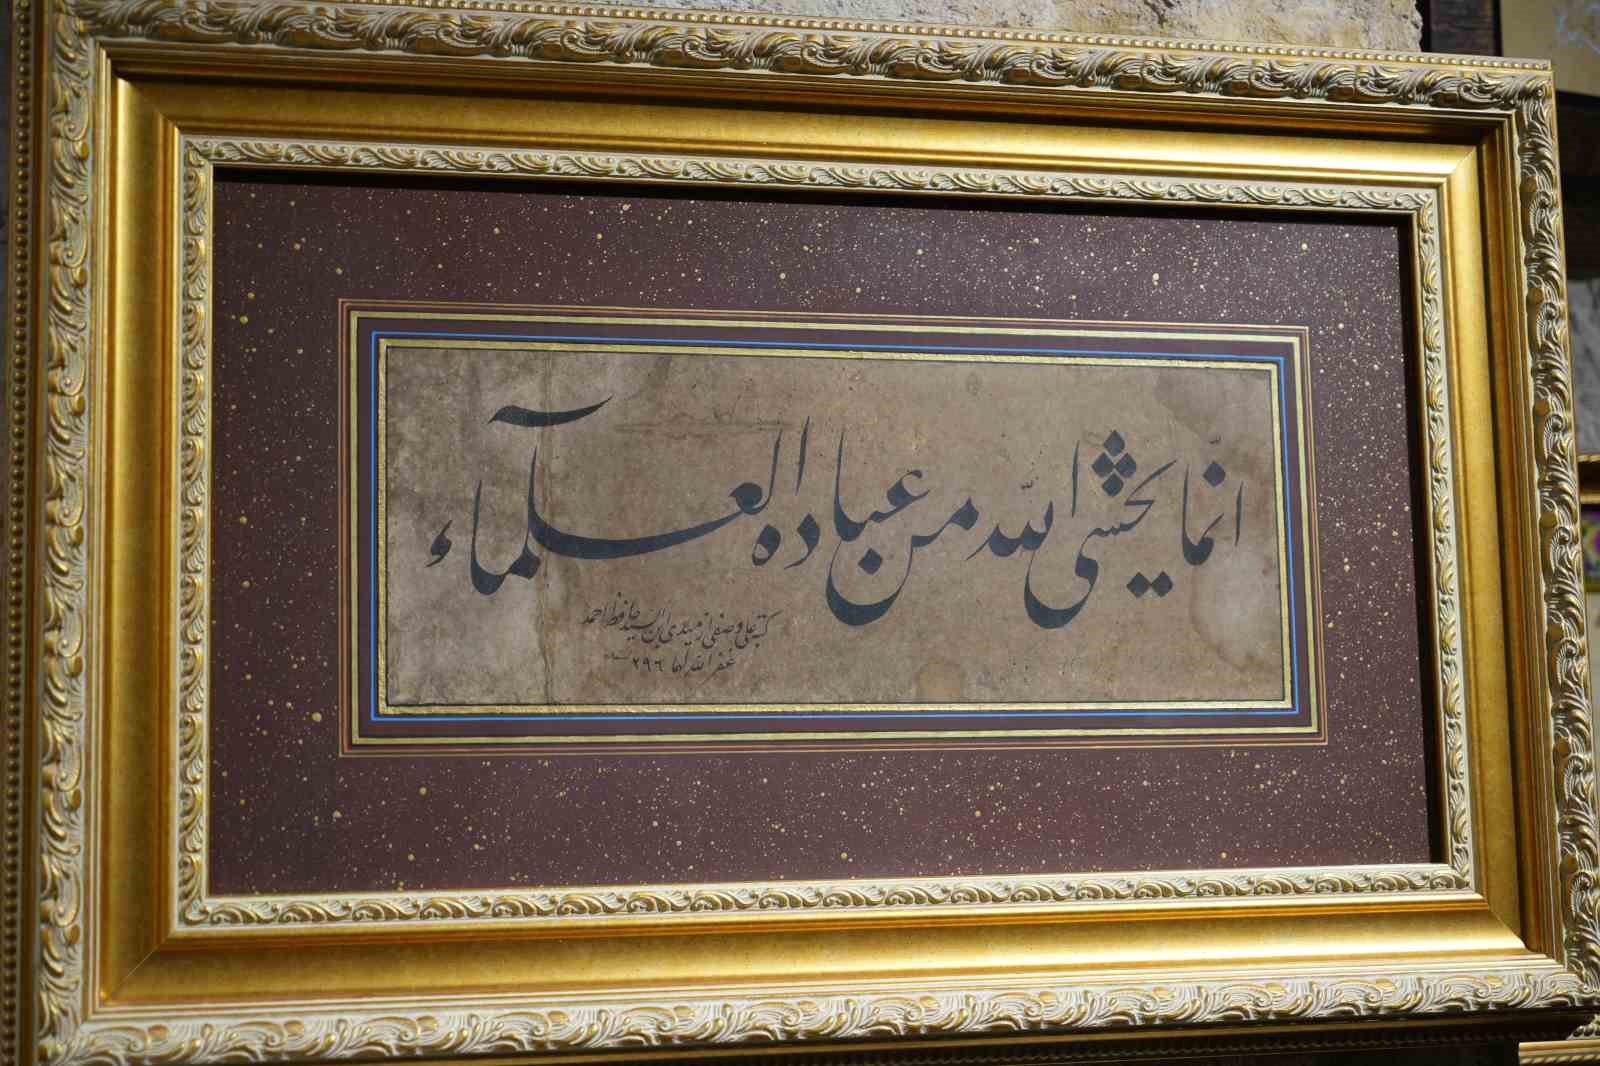 انّما يخشى اللّه من عباده العلمآء
كتبه علي وصفي ازميدي ابن السيد حافظ احمد
غفر الله لهما ٢٩٦